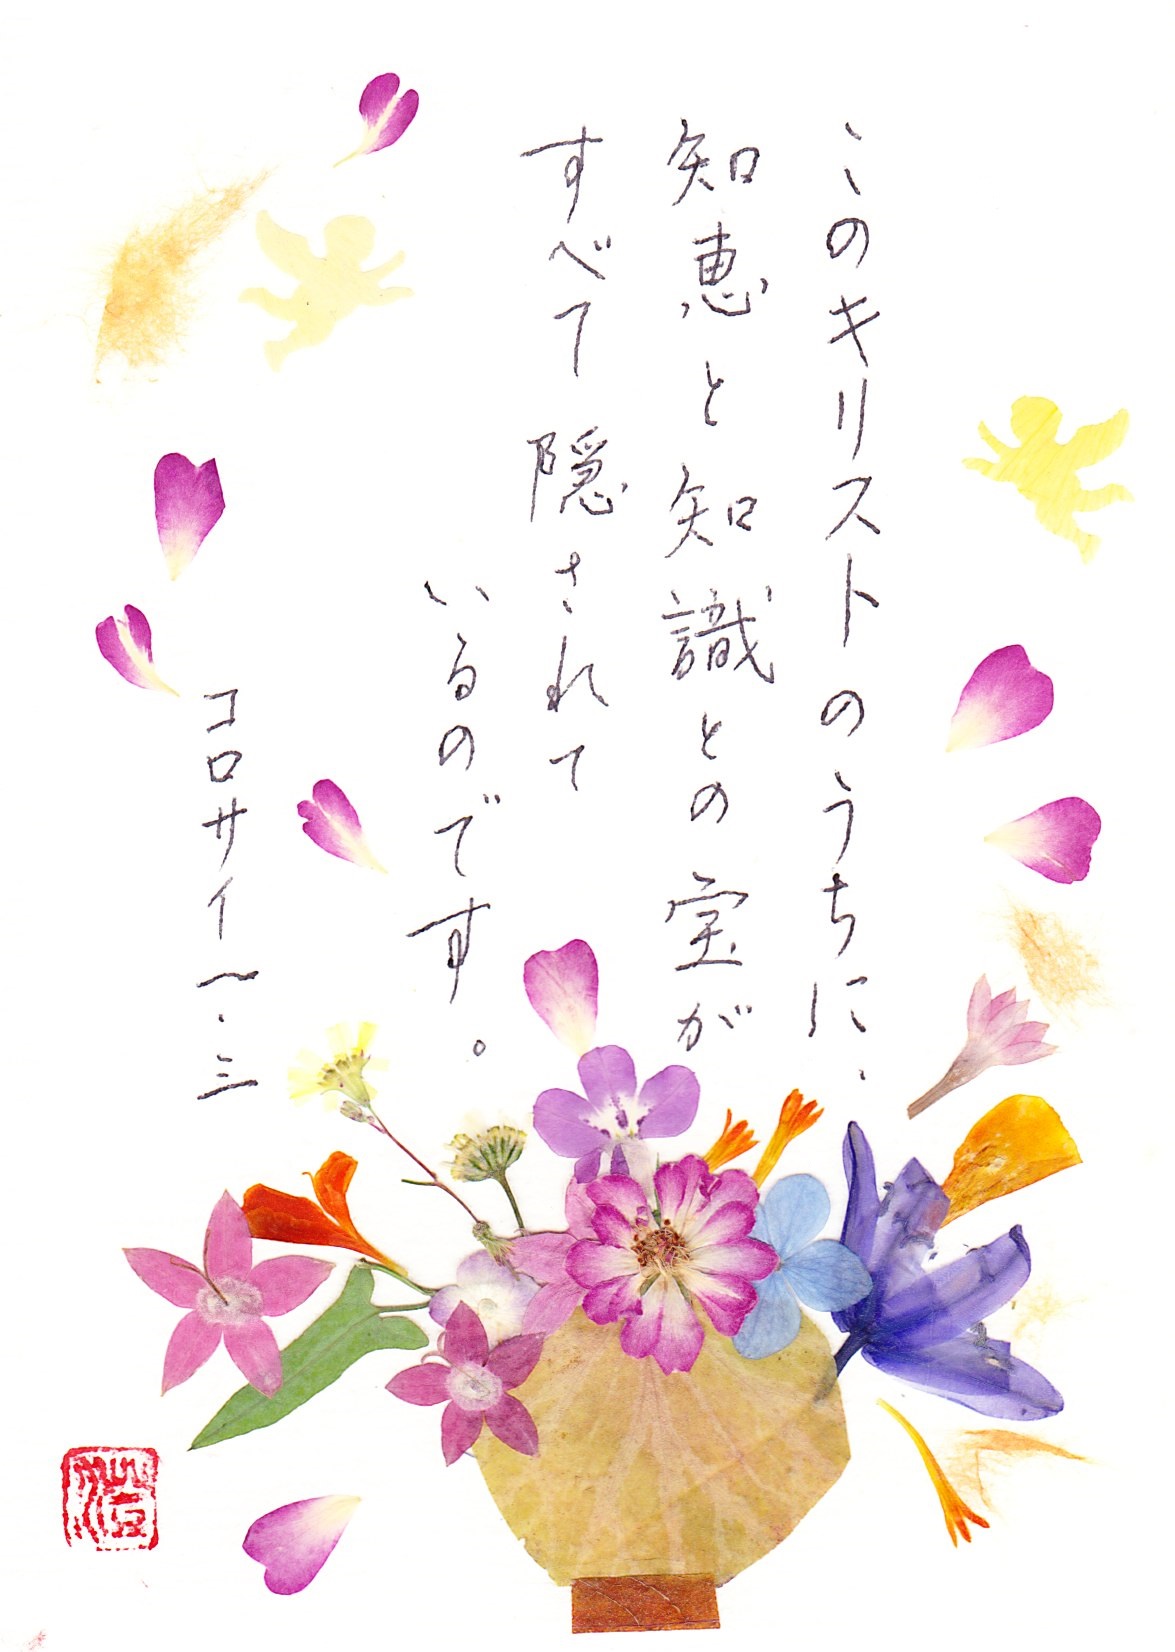 このキリストのうちに、
知恵と知識との宝が
すべて隠されて
いるのです。
コロサイ二・三